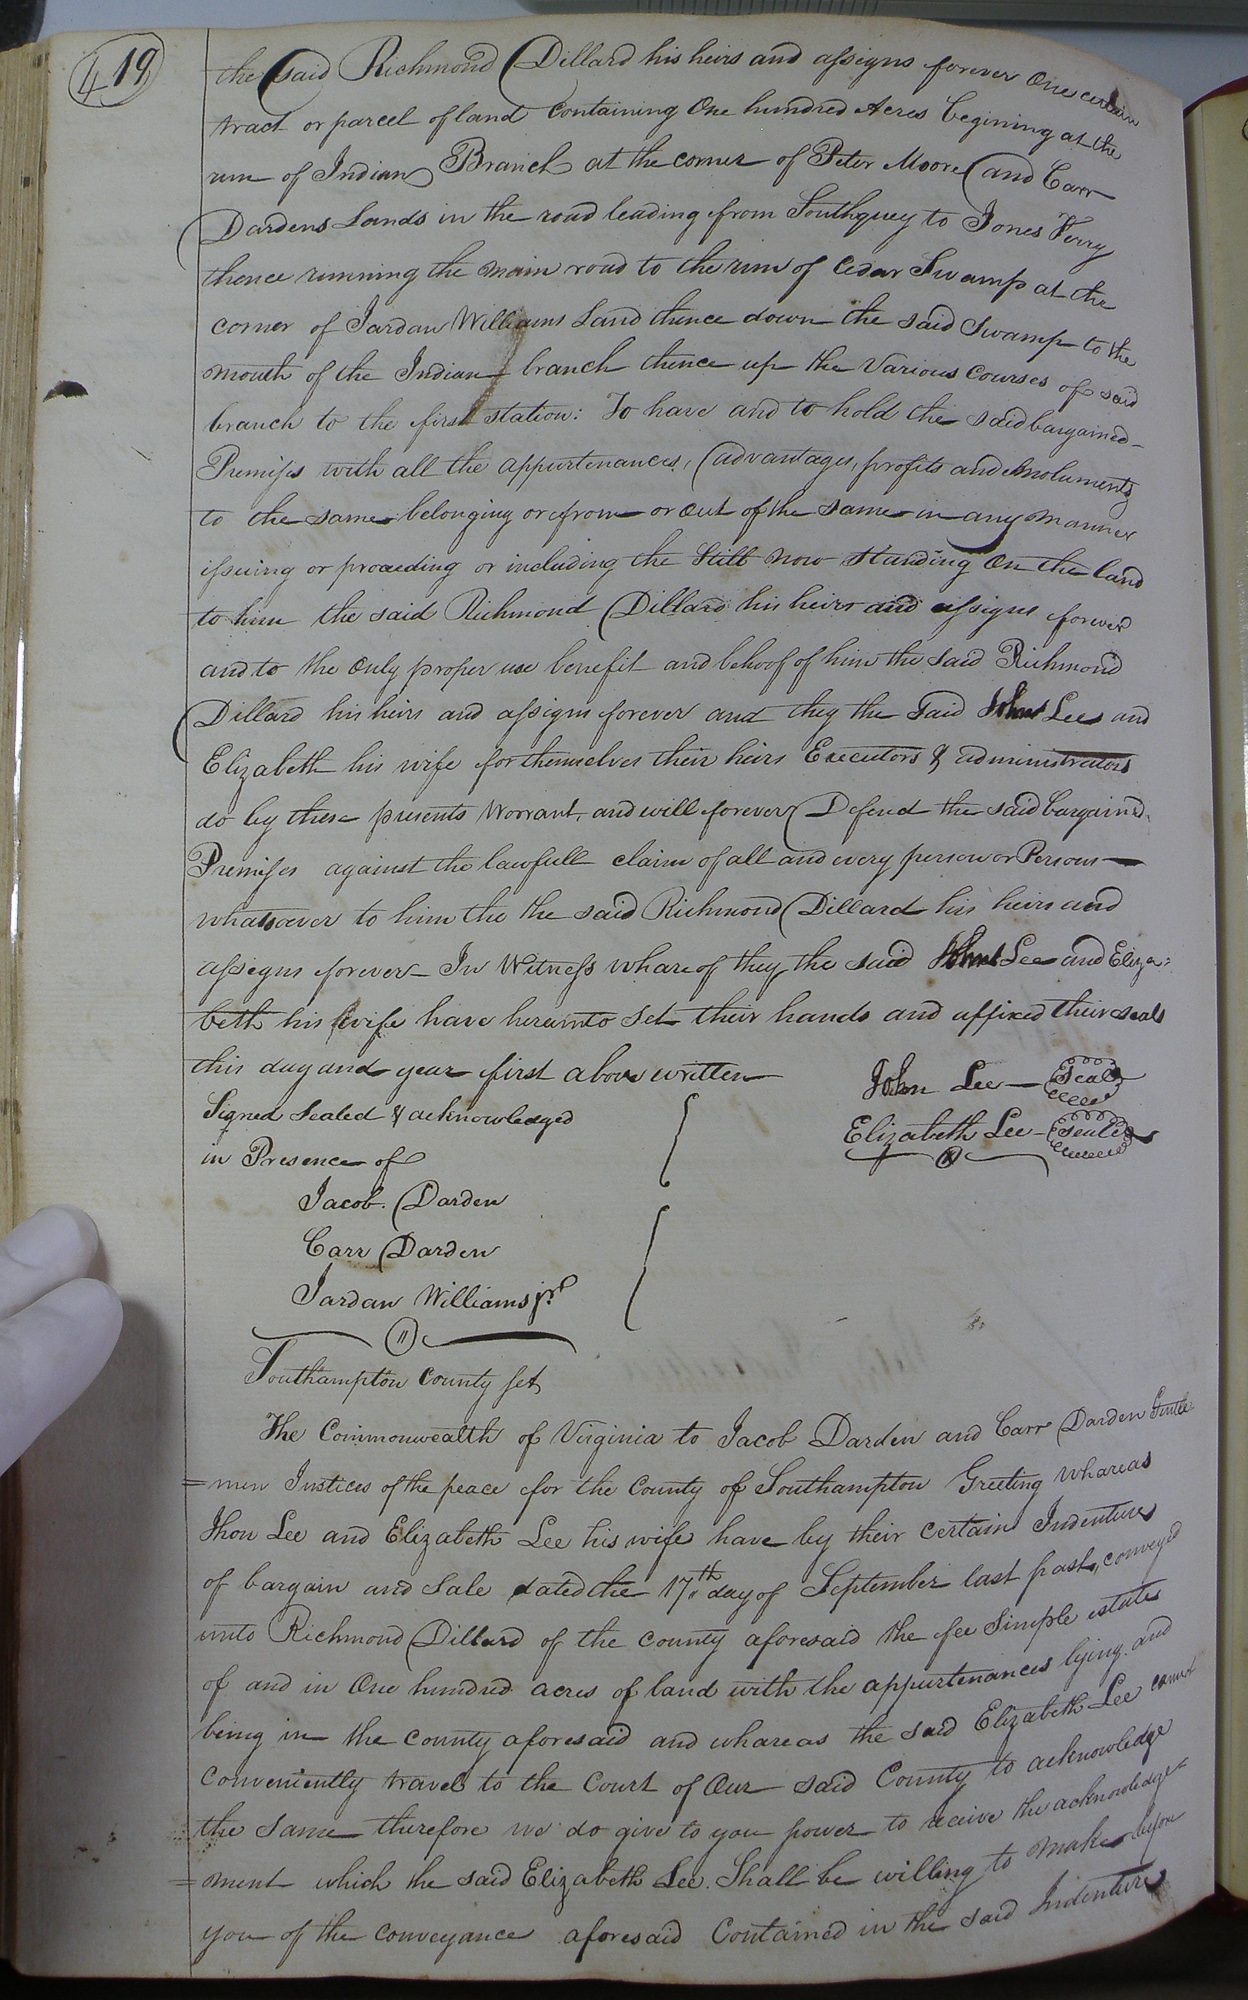 419
the said Richmond Dillard his heirs and assigns forever One certain
tract or parcel of land containing One hundred Acres begining at the
run of Indian Branch at the corner of Peter Moore and Carr
Dardens Lands in the road leading from Southquey to Jones Ferry
thence running the main road to the run of Cedar Swamp at the
corner of Jardan Williams Land thence down the said Swamp to the
mouth of the Indian branch thence up the Various Courses of said
branch to the first station: To have and to hold the said bargained
Premises with all the appurtenances, advantages, profits and emoluments
to the same belonging or from or out of the same in any manner
issuing or proceeding or including the Still now standing On the land
to him the said Richmond Dillard his heirs and assigns forever
and to the only proper use benefit and behoof of him the said Richmond
Dillard his heirs and assigns forever and they the said John Lee and
Elizabeth his wife for themselves their heirs Executors & administrators
do by these presents Warrant and will forever Defend the said bargained
Premises against the lawfull claim of all and every person or Persons
whatsoever to him the the said Richmond Dillard his heirs and
assigns forever In Witness whareof they the said John Lee and Eliza:
beth his wife have hereunto Set their hands and affixed their seals
this day and year first above written
John Lee Seal
Signed Sealed & acknowledged
Elizabeth Lee Seal
in Presence of
Jacob. Darden
Carr Darden
Jardan Williams jr.
Southampton County Set
The Commonwealth of Virginia to Jacob Darden and Carr Darden Gentle
=men Justices of the peace for the County of Southampton Greeting whareas
Jhon Lee and Elizabeth Lee his wife have by their certain Indenture
of bargain and Sale dated the 17th day of September last past, conveyed
unto Richmond Dillard of the county aforesaid the fee Simple estate
of and in One hundred acres of land with the appurtenances lying and
being in the county aforesaid and whareas the said Elizabeth Lee cannot
Conveniently travel to the Court of Our said County to acknowledge
the Same therefore we do give to you power to receive the acknowledge
=ment which the said Elizabeth Lee Shall be willing to make before
you of the conveyance aforesaid Contained in the said Indenture